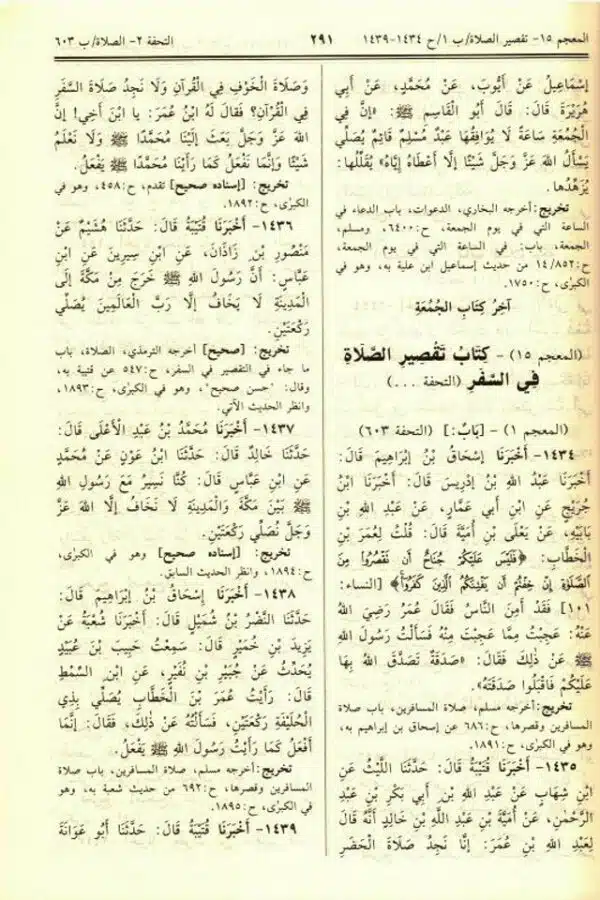 المعجم ١٥- تقصير الصلاة/ب ١/ح ١٤٣٤-١٤٣٩
٢٩١
التحفة ٢- الصلاة/ب ٦٠٣
إِسْمَاعِيلُ عَنْ أَيُّوبَ، عَنْ مُحَمَّدٍ، عَنْ أَبِي
هُرَيْرَةَ قَالَ: قَالَ أَبُو الْقَاسِمِ ﷺ: «إِنَّ فِي
الْجُمُعَةِ سَاعَةً لَا يُوَافِقُهَا عَبْدٌ مُسْلِمٌ قَائِمٌ يُصَلِّي
يَسْأَلُ اللهَ عَزَّ وَجَلَّ شَيْئًا إِلَّا أَعْطَاهُ إِيَّاهُ» يُقَلِّلُهَا:
يُزَهِّدُهَا.
تخريج: أخرجه البخاري، الدعوات، باب الدعاء في
الساعة التي في يوم الجمعة، ح:٦٤٠٠، ومسلم،
الجمعة، باب: في الساعة التي في يوم الجمعة،
ح:١٤/٨٥٢ من حديث إسماعيل ابن علية به، وهو في
الكبرى، ح:١٧٥٠.
آخِرُ كِتَابِ الْجُمُعَةِ
(المعجم ١٥) - كِتَابُ تَقْصِيرِ الصَّلَاةِ
فِي السَّفَرِ (التحفة ...)
(المعجم ١) - [بَابٌ:] (التحفة ٦٠٣)
١٤٣٤- أَخْبَرَنَا إِسْحَاقُ بْنُ إِبْرَاهِيمَ قَالَ:
أَخْبَرَنَا عَبْدُ اللهِ بْنُ إِدْرِيسَ قَالَ: أَخْبَرَنَا ابْنُ
جُرَيْجٍ عَنِ ابْنِ أَبِي عَمَّارٍ، عَنْ عَبْدِ اللهِ بْنِ
بَابَيْهِ، عَنْ يَعْلَى بْنِ أُمَيَّةَ قَالَ: قُلْتُ لِعُمَرَ بْنِ
الْخَطَّابِ: ﴿فَلَيْسَ عَلَيْكُمْ جُنَاحٌ أَن تَقْصُرُوا مِنَ
الصَّلَوٰةِ إِنْ خِفْتُمْ أَن يَفْتِنَكُمُ الَّذِينَ كَفَرُوا﴾ [النساء:
١٠١] فَقَدْ أَمِنَ النَّاسُ فَقَالَ عُمَرُ رَضِيَ اللهُ
عَنْهُ: عَجِبْتُ مِمَّا عَجِبْتَ مِنْهُ فَسَأَلْتُ رَسُولَ اللهِ
ﷺ عَنْ ذٰلِكَ فَقَالَ: «صَدَقَةٌ تَصَدَّقَ اللهُ بِهَا
عَلَيْكُمْ فَاقْبَلُوا صَدَقَتَهُ».
تخريج: أخرجه مسلم، صلاة المسافرين، باب صلاة
المسافرين وقصرها، ح:٦٨٦ عن إسحاق بن إبراهيم به،
وهو في الكبرى، ح:١٨٩١.
١٤٣٥- أَخْبَرَنَا قُتَيْبَةُ قَالَ: حَدَّثَنَا اللَّيْثُ عَنِ
ابْنِ شِهَابٍ عَنْ عَبْدِ اللهِ بْنِ أَبِي بَكْرِ بْنِ عَبْدِ
الرَّحْمٰنِ، عَنْ أُمَيَّةَ بْنِ عَبْدِ اللَّهِ بْنِ خَالِدٍ أَنَّهُ قَالَ
لِعَبْدِ اللهِ بْنِ عُمَرَ: إِنَّا نَجِدُ صَلَاةَ الْحَضَرِ
وَصَلَاةَ الْخَوْفِ فِي الْقُرْآنِ وَلَا نَجِدُ صَلَاةَ السَّفَرِ
فِي الْقُرْآنِ؟ فَقَالَ لَهُ ابْنُ عُمَرَ: يا ابْنَ أَخِي! إِنَّ
اللهَ عَزَّ وَجَلَّ بَعَثَ إِلَيْنَا مُحَمَّدًا ﷺ وَلَا نَعْلَمُ
شَيْئًا وَإِنَّمَا نَفْعَلُ كَمَا رَأَيْنَا مُحَمَّدًا ﷺ يَفْعَلُ.
تخريج: [إسناده صحيح] تقدم، ح:٤٥٨، وهو في
الكبرى، ح:١٨٩٢.
١٤٣٦- أَخْبَرَنَا قُتَيْبَةُ قَالَ: حَدَّثَنَا هُشَيْمٌ عَنْ
مَنْصُورِ بْنِ زَاذَانَ، عَنِ ابْنِ سِيرِينَ عَنِ ابْنِ
عَبَّاسٍ: أَنَّ رَسُولَ اللهِ ﷺ خَرَجَ مِنْ مَكَّةَ إِلَى
الْمَدِينَةِ لَا يَخَافُ إِلَّا رَبَّ الْعَالَمِينَ يُصَلِّي
رَكْعَتَيْنِ.
تخريج: [صحيح] أخرجه الترمذي، الصلاة، باب
ما جاء في التقصير في السفر، ح:٥٤٧ عن قتيبة به،
وقال: "حسن صحيح"، وهو في الكبرى، ح:١٨٩٣،
وانظر الحديث الآتي.
١٤٣٧- أَخْبَرَنَا مُحَمَّدُ بْنُ عَبْدِ الْأَعْلَى قَالَ:
حَدَّثَنَا خَالِدٌ قَالَ: حَدَّثَنَا ابْنُ عَوْنٍ عَنْ مُحَمَّدٍ
عَنِ ابْنِ عَبَّاسٍ قَالَ: كُنَّا نَسِيرُ مَعَ رَسُولِ اللهِ
ﷺ بَيْنَ مَكَّةَ وَالْمَدِينَةِ لَا نَخَافُ إِلَّا اللهَ عَزَّ
وَجَلَّ نُصَلِّي رَكْعَتَيْنِ.
تخريج: [إسناده صحيح] وهو في الكبرى،
ح:١٨٩٤، وانظر الحديث السابق.
١٤٣٨- أَخْبَرَنَا إِسْحَاقُ بْنُ إِبْرَاهِيمَ قَالَ:
حَدَّثَنَا النَّضْرُ بْنُ شُمَيْلٍ قَالَ: أَخْبَرَنَا شُعْبَةُ عَنْ
يَزِيدَ بْنِ خُمَيْرٍ قَالَ: سَمِعْتُ حَبِيبَ بْنَ عُبَيْدٍ
يُحَدِّثُ عَنْ جُبَيْرِ بْنِ نُفَيْرٍ، عَنِ ابْنِ السِّمْطِ
قَالَ: رَأَيْتُ عُمَرَ بْنَ الْخَطَّابِ يُصَلِّي بِذِي
الْحُلَيْفَةِ رَكْعَتَيْنِ، فَسَأَلْتُهُ عَنْ ذٰلِكَ، فَقَالَ: إِنَّمَا
أَفْعَلُ كَمَا رَأَيْتُ رَسُولَ اللهِ ﷺ يَفْعَلُ.
تخريج: أخرجه مسلم، صلاة المسافرين، باب صلاة
المسافرين وقصرها، ح:٦٩٢ من حديث شعبة به، وهو
في الكبرى، ح:١٨٩٥.
١٤٣٩- أَخْبَرَنَا قُتَيْبَةُ قَالَ: حَدَّثَنَا أَبُو عَوَانَةَ